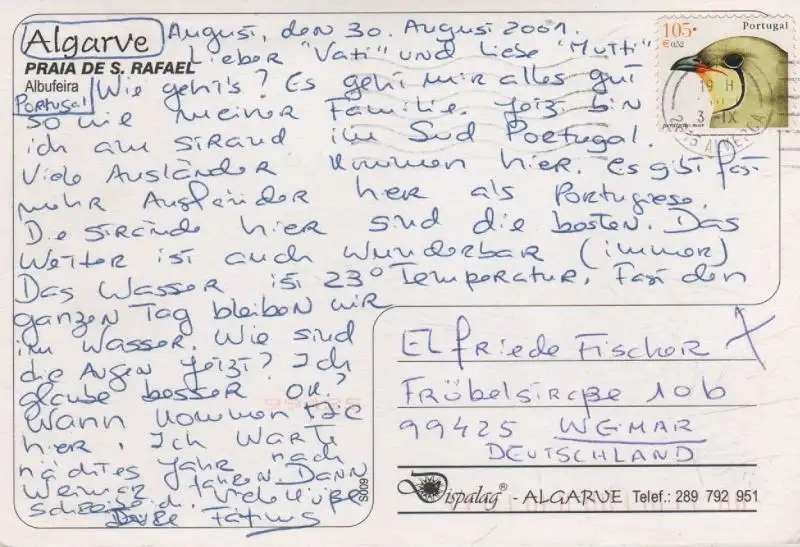 Algarve August, den 30. August 2001.
Lieber "Vati" und liebe "Mutti"
PRAIA DE S. RAFAEL
Albufeira
Portugal
Wie geht's? Es geht mir alles gut
so wie meiner Familie. Jetzt bin
ich am Strand im Sud Portugal.
Viele Ausländer kommen hier. Es gibt fast
mehr Ausländer her als Portugiese.
Die Strände hier sind die besten. Das
Wetter ist auch wunderbar (immer)
Das Wasser ist 23° Temperatur. Fast den
ganzen Tag bleiben wir
im Wasser. Wie sind
die Augen jetzt? Ich
glaube besser OK?
Wann kommen
hier. Ich warte
nächtes Jahr nach
Weimar fahren. Dann
Viele
Fátima
105.
€0,52
Portugal
19 H
3 -IX
Elfriede Fischer X
Fröbelstraße 10b
99425 WEIMAR
DEUTSCHLAND
Dispalag® - ALGARVE Telef.: 289 792 951
S009